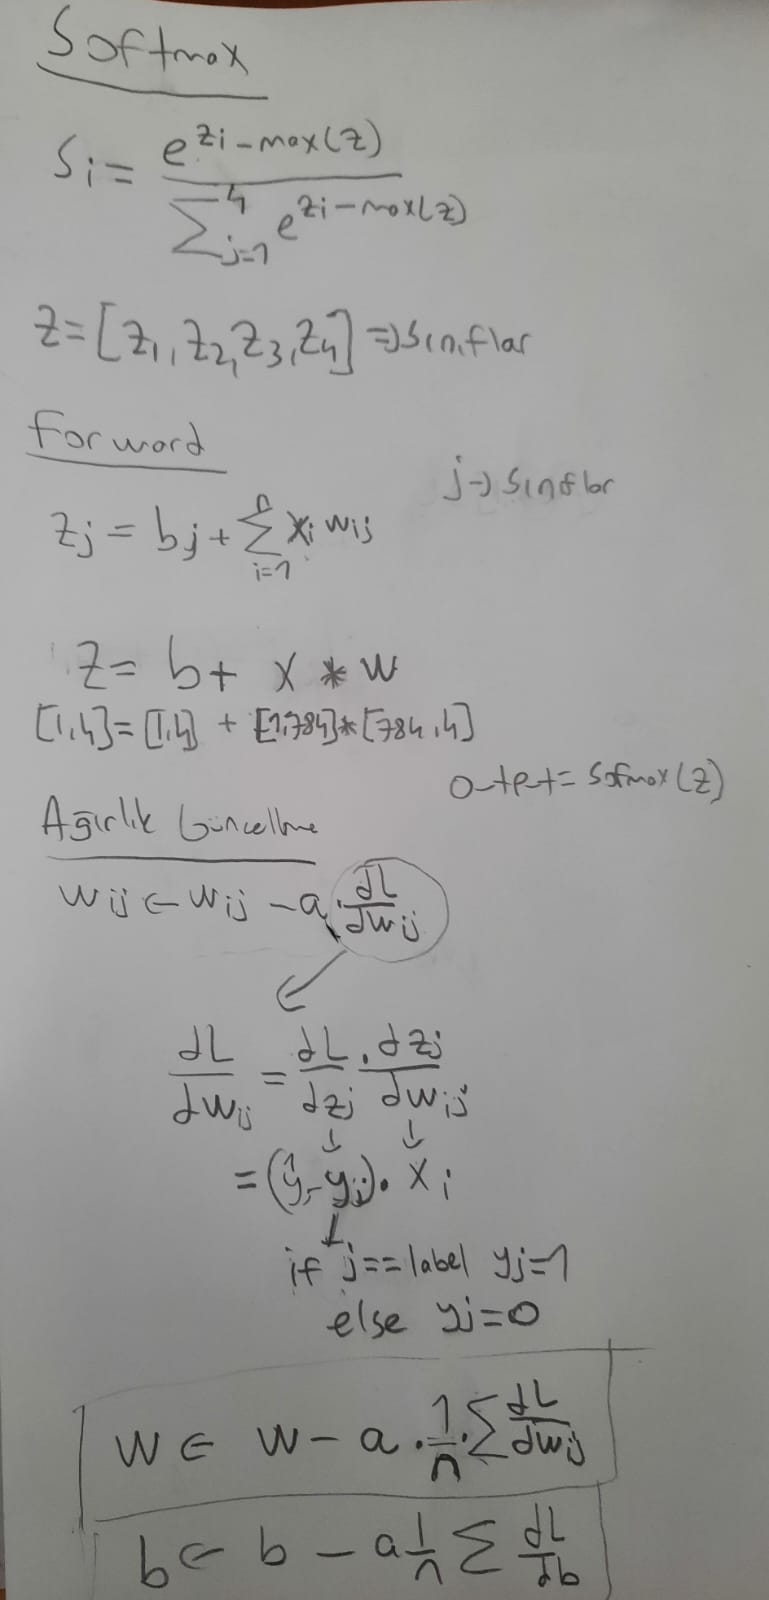 Softmax
Si = e^(zi - max(z)) / ∑_{j=1}^{4} e^(zi - max(z))
z = [z1, z2, z3, z4] => Sınıflar
Forward
j -> Sınıflar
zj = bj + ∑_{i=1}^{n} xi wij
z = b + x * w
[1,4] = [1,4] + [1,784] * [784,4]
Output = Sofmax(z)
Ağırlık Güncelleme
wij ← wij - a . dL/dwij
dL/dwij = dL/dzj . dzj/dwij
= (ŷj - yj) . xi
if j == label yj = 1
else yj = 0
w ← w - a . 1/n . ∑ dL/dwij
b ← b - a 1/n ∑ dL/db